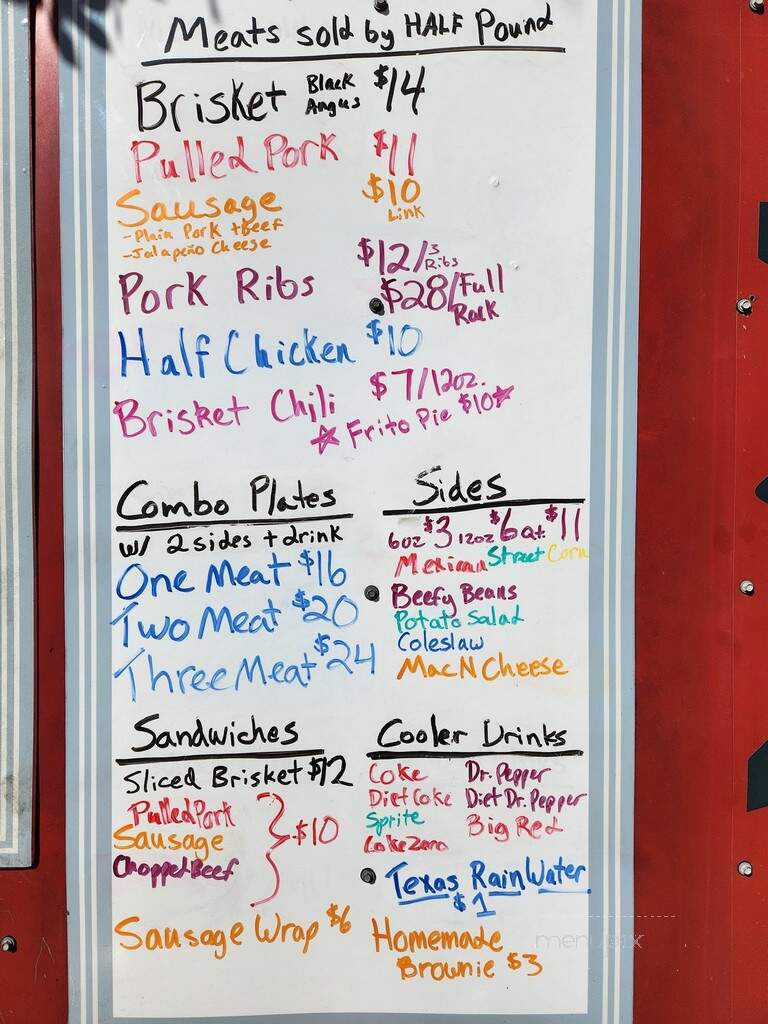 Meats sold by HALF Pound
Brisket Black Angus $14
Pulled Pork $11
Sausage $10 Link
-Plain Pork + Beef
-Jalapeño Cheese
Pork Ribs $12/3 Ribs
$28/Full Rack
Half Chicken $10
Brisket Chili $7/12oz.
☆ Frito Pie $10☆
Combo Plates
w/ 2 sides + drink
One Meat $16
Two Meat $20
Three Meat $24
Sides
6oz $3 12oz $6 Qt. $11
Mexican Street Corn
Beefy Beans
Potato Salad
Coleslaw
Mac N Cheese
Sandwiches
Sliced Brisket $12
Pulled Pork
Sausage } $10
Chopped Beef
Sausage Wrap $6
Cooler Drinks
Coke Dr. Pepper
Diet Coke Diet Dr. Pepper
Sprite Big Red
Coke Zero
Texas Rain Water
$1
Homemade
Brownie $3
menupix